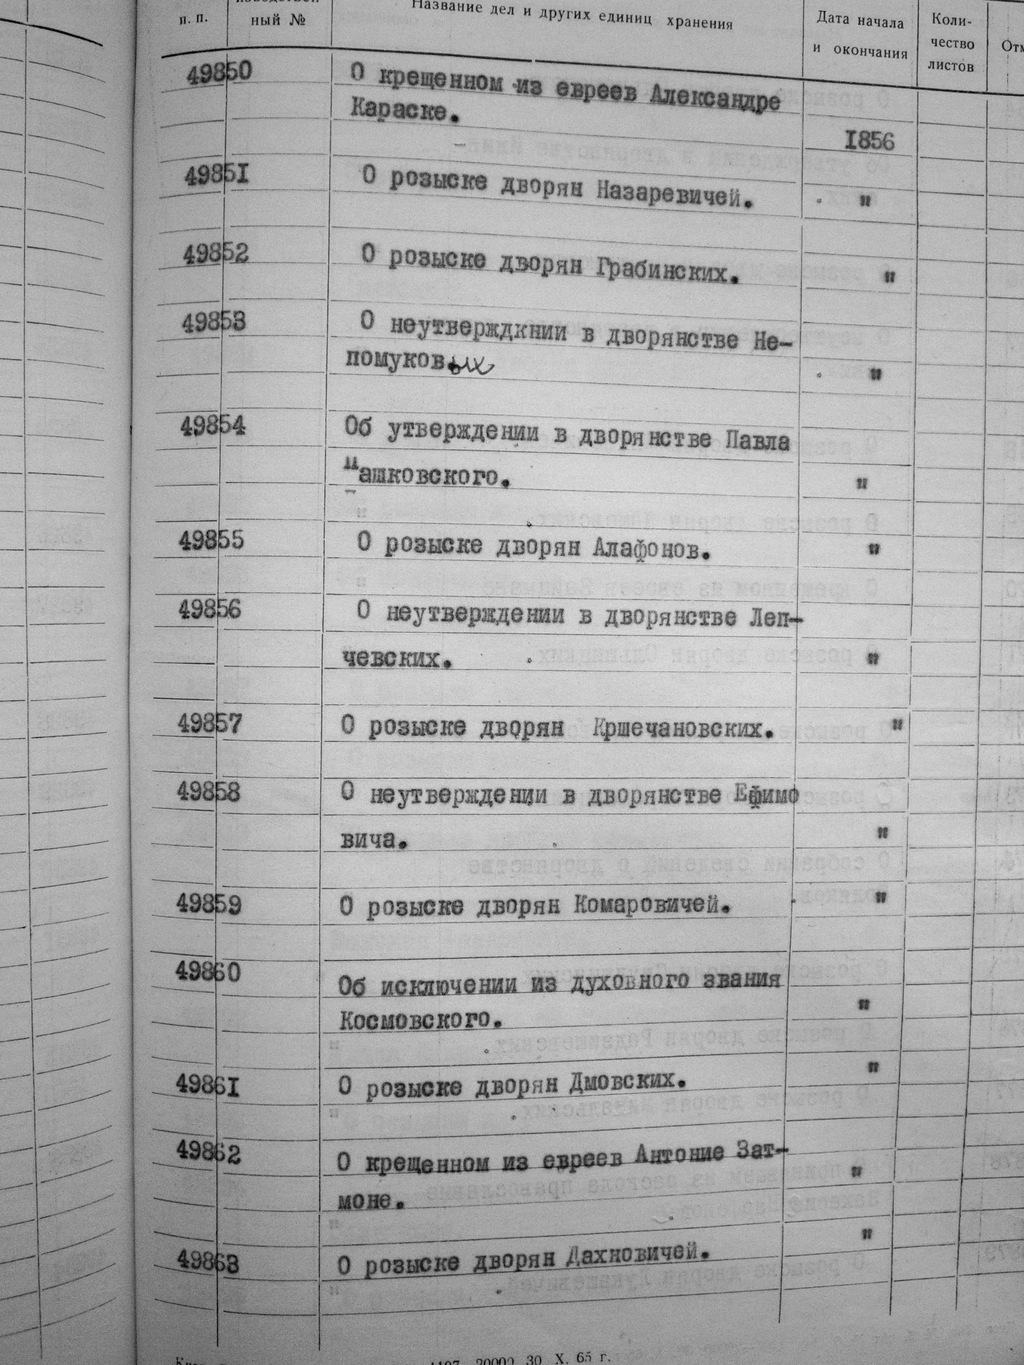 п. п.
ный №
Название дел и других единиц хранения
Дата начала
и окончания
Коли-
чество
листов
49850 О крещенном из евреев Александре
Караске.
1856
49851 О розыске дворян Назаревичей. "
49852 О розыске дворян Грабинских. "
49853 О неутверждкнии в дворянстве Не-
помуковых "
49854 Об утверждении в дворянстве Павла
Машковского. "
49855 О розыске дворян Алафонов. "
49856 О неутверждении в дворянстве Леп-
чевских. "
49857 О розыске дворян Кршечановских. "
49858 О неутверждении в дворянстве Ефимо
вича. "
49859 О розыске дворян Комаровичей. "
49860 Об исключении из духовного звания
Космовского. "
49861 О розыске дворян Дмовских. "
49862 О крещенном из евреев Антоние Зат-
моне. "
49863 О розыске дворян Дахновичей. "
20000 30 X. 65 г.